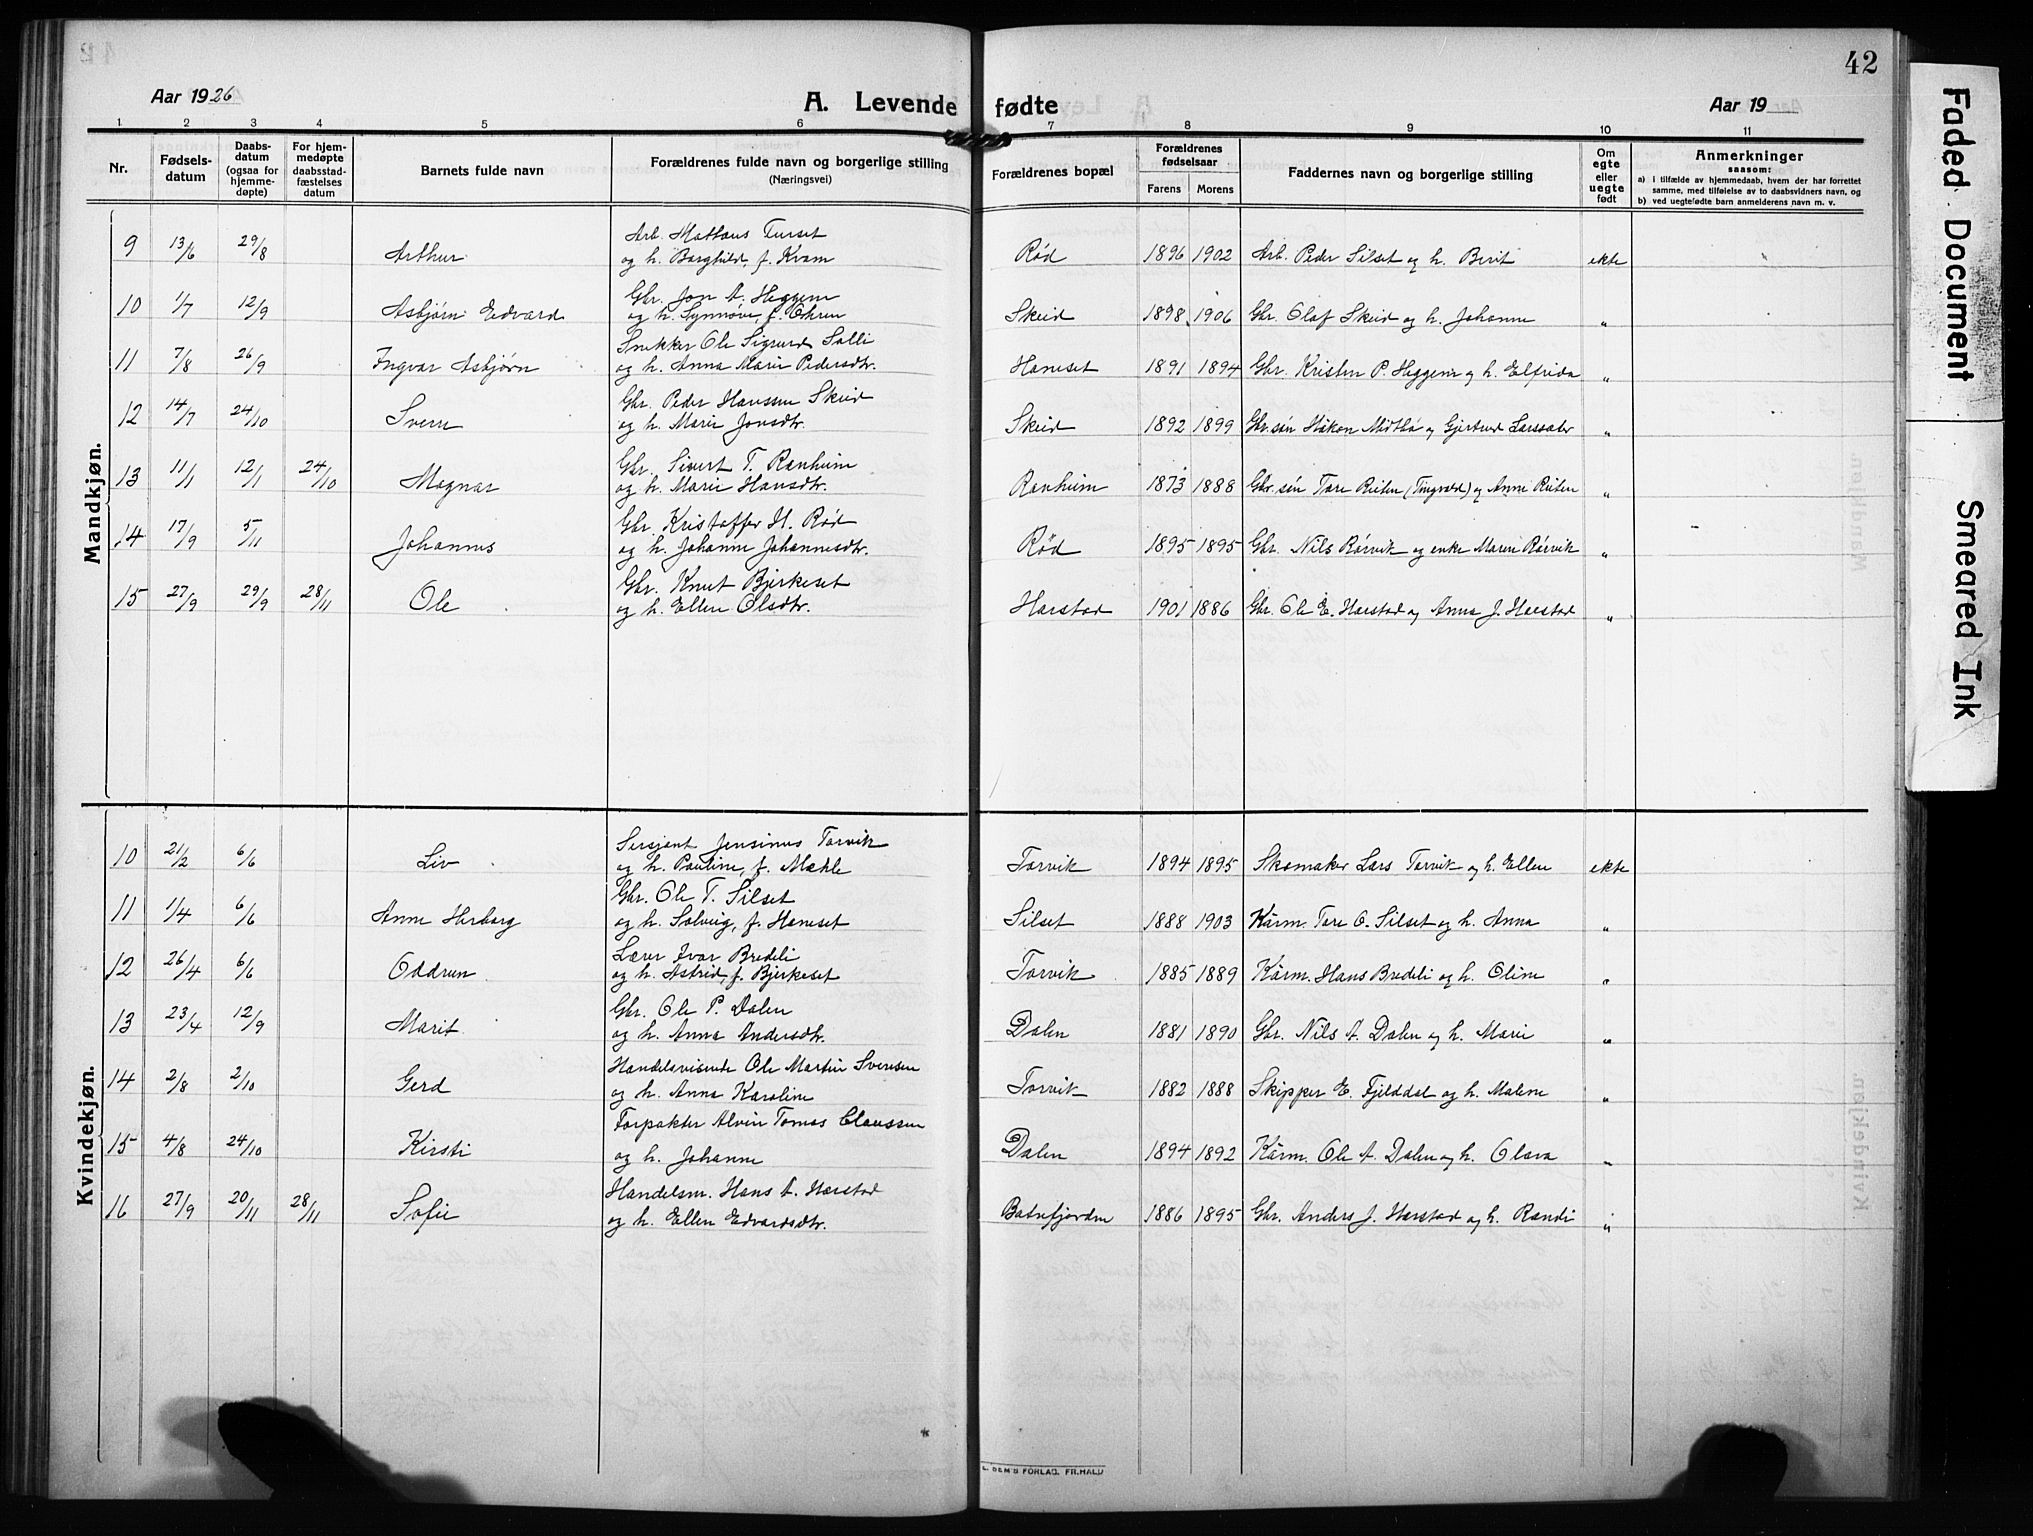 42
Aar 1926
A. Levende fødte
Aar 19
Faded Document
Smeared Ink
1 2 3 4 5 6 7 8 9 10 11
Nr.
Fødselsdatum
Daabsdatum (ogsaa for hjemmedøpte)
For hjemmedøpte daabsstadfæstelses datum
Barnets fulde navn
Forældrenes fulde navn og borgerlige stilling
(Næringsvei)
Forældrenes bopæl
Forældrenes fødselsaar
Farens Morens
Faddernes navn og borgerlige stilling
Om egte eller uegte født
Anmerkninger
saasom:
a) i tilfælde av hjemmedaab, hvem der har forrettet
samme, med tilføielse av to daabsvidners navn, og
b) ved uegtefødte barn anmelderens navn m. v.
Mandkjøn.
Arb. Mattæus Furset
9 13/6 29/8 Arthur og h. Borghild, f. Kvam Rød 1896 1902 Arb. Peder Silset og h. Berit ekte
Gbr. Jon A. Heggem
10 1/7 12/9 Asbjørn Edvard og h. Synnøve f. Ohren Skeid 1898 1906 Gbr. Olaf Skeid og h. Johanne "
Snekker Ole Sigurd Solli
11 7/8 26/9 Ingvar Asbjørn og h. Anna Marie Pedersdtr. Haneset 1891 1894 Gbr. Kristen P. Heggem og h. Elfrida "
Gbr. Peder Hanssen Skeid
12 14/7 24/10 Svein og h. Marie Jonsdtr. Skeid 1892 1899 Gbr. søn Håkon Midtbø og Gjertrud Larssæter "
Gbr. Sivert T. Ranheim
13 11/1 12/1 24/10 Magnar og h. Marie Hansdtr. Ranheim 1873 1888 Gbr. søn Tore Reiten (Tingvold) og Anne Reiten "
Gbr. Kristoffer H. Rød
14 17/9 5/11 Johannes og h. Johanne Johannesdtr. Rød 1895 1895 Gbr. Nils Rørvik og enke Marie Rørvik "
Gbr. Knut Bjerkeset
15 27/9 29/9 28/11 Ole og h. Ellen Olsdtr. Harstad 1901 1886 Gbr. Ole E. Harstad og Anna J. Harstad "
Kvindekjøn.
Sersjant Jensinus Torvik
10 21/2 6/6 Liv og h. Pauline, f. Mækle Torvik 1894 1895 Skomaker Lars Torvik og h. Ellen ekte
Gbr. Ole T. Silset
11 1/4 6/6 Anne Herborg og h. Solveig, f. Haneset Silset 1888 1903 Kårm. Tore O. Silset og h. Anna "
Lærer Ivar Bredeli
12 26/4 6/6 Oddrun og h. Astrid, f. Bjerkeset Torvik 1885 1889 Kårm. Hans Bredeli og h. Oline "
Gbr. Ole P. Dalen
13 23/4 12/9 Marit og h. Anna Andersdtr. Dalen 1881 1890 Gbr. Nils A. Dalen og h. Marie "
Handelsreisende Ole Martin Svensen
14 2/8 2/10 Gerd og h. Anna Karoline Torvik 1882 1888 Skipper E. Fjelddal og h. Malene "
Forpakter Alvin Tomas Claussen
15 4/8 24/10 Kirsti og h. Johanne Dalen 1894 1892 Kårm. Ole A. Dalen og h. Olava "
Handelsm. Hans A. Harstad
16 27/9 20/11 28/11 Sofie og h. Ellen Edvardsdtr. Batnfjorden 1886 1895 Gbr. Anders J. Harstad og h. Randi "
*
SEM'S FORLAG. FR. HALD